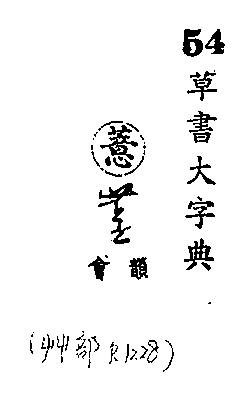 54
草書大字典
薏
韻會
(艸部 P.1228)